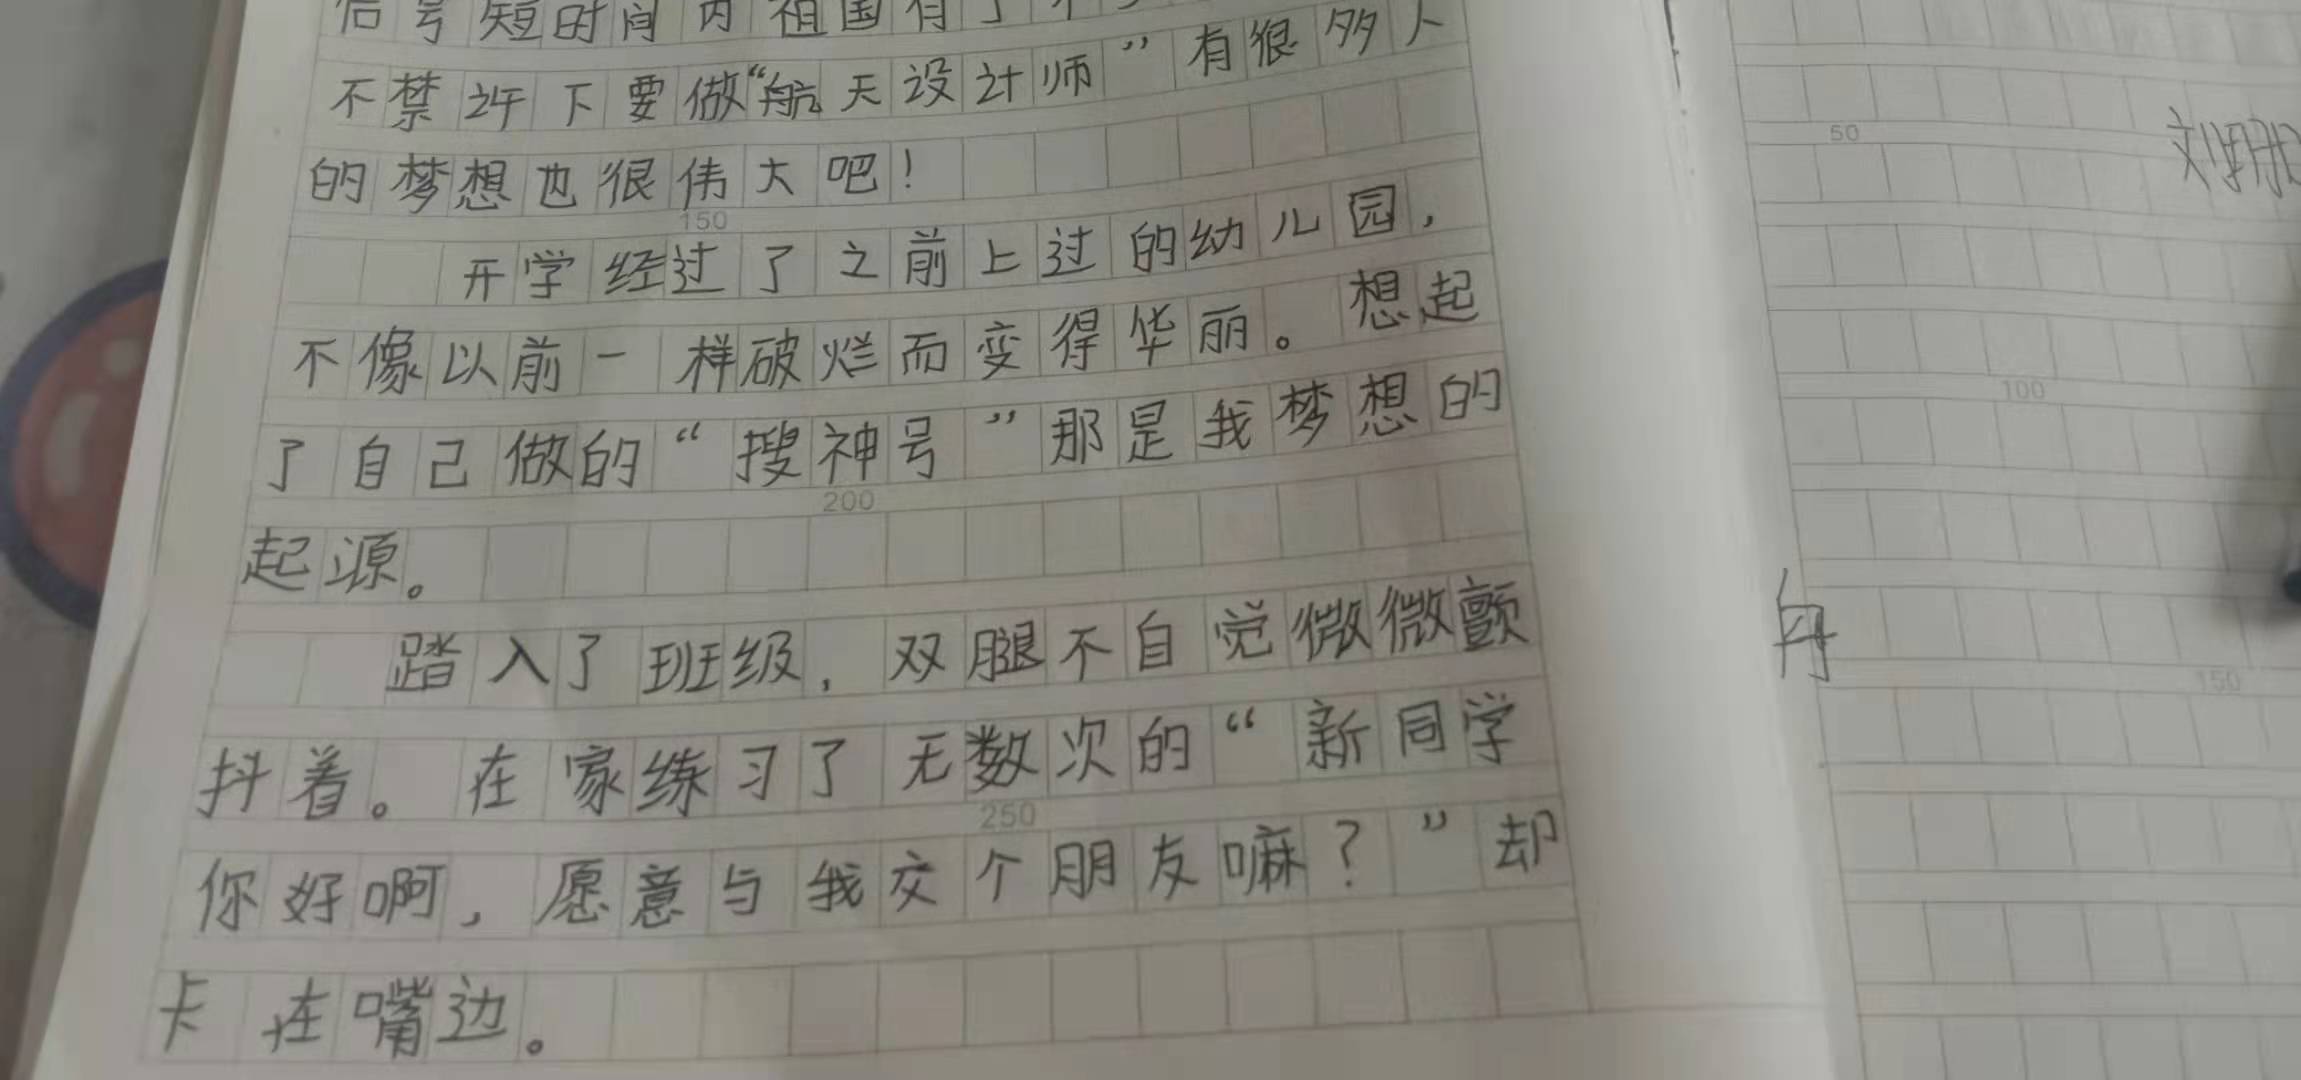 信号短时间内祖国有了不
不禁许下要做“航天设计师”有很多人
的梦想也很伟大吧！
150
开学经过了之前上过的幼儿园，
不像以前一样破烂而变得华丽。想起
了自己做的“搜神号”那是我梦想的
200
起源。
踏入了班级，双腿不自觉微微颤
抖着。在家练习了无数次的“新同学
250
你好啊，愿意与我交个朋友嘛？”却
卡在嘴边。
50
100
150